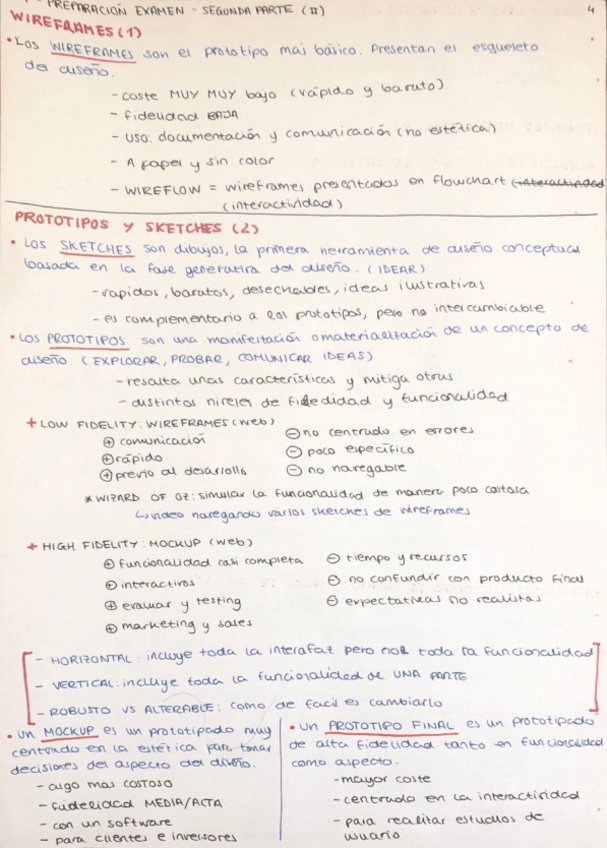 - PREPARACIÓN EXAMEN - SEGUNDA PARTE (II)
4
WIREFRAMES (1)
• Los WIREFRAMES son el prototipo mas básico. Presentan el esqueleto
del diseño.
- coste MUY MUY bajo (rápido y barato)
- fidelidad BAJA
- Uso: documentación y comunicación (no estética)
- A papel y sin color
- WIREFLOW = wireframes presentados en flowchart (interactividad
(interactividad)
PROTOTIPOS y SKETCHES (2)
• Los SKETCHES son dibujos, la primera herramienta de diseño conceptual
basada en la fase generativa del diseño. (IDEAR)
- rapidos, baratos, desechables, ideas ilustrativas
- es complementario a los prototipos, pero no intercambiable
• Los PROTOTIPOS son una manifestación o materialización de un concepto de
diseño (EXPLORAR, PROBAR, COMUNICAR IDEAS)
- resalta unas características y mitiga otras
- distintos niveles de fidedidad y funcionalidad
+ LOW FIDELITY: WIREFRAMES (web)
⊕ comunicación ⊖ no centrado en errores
⊕ rápido ⊖ poco específico
⊕ previo al desarrollo ⊖ no navegable
* WIZARD OF OZ: simular la funcionalidad de manera poco costosa
↳ video navegando varios sketches de wireframes
+ HIGH FIDELITY: MOCKUP (web)
⊕ funcionalidad casi completa ⊖ tiempo y recursos
⊕ interactivos ⊖ no confundir con producto final
⊕ evaluar y testing ⊖ expectativas no realistas
⊕ marketing y sales
- HORIZONTAL: incluye toda la interafaz pero no toda la funcionalidad
- VERTICAL: incluye toda la funcionalidad de UNA PARTE
- ROBUSTO VS ALTERABLE: como de facil es cambiarlo
• Un MOCKUP es un prototipado muy
centrado en la estética para tomar
decisiones del aspecto del diseño.
- algo mas costoso
- fidelidad MEDIA/ALTA
- con un software
- para clientes e inversores
• Un PROTOTIPO FINAL es un prototipado
de alta fidelidad tanto en funcionalidad
como aspecto.
- mayor coste
- centrado en la interactividad
- para realitar estudios de
usuario